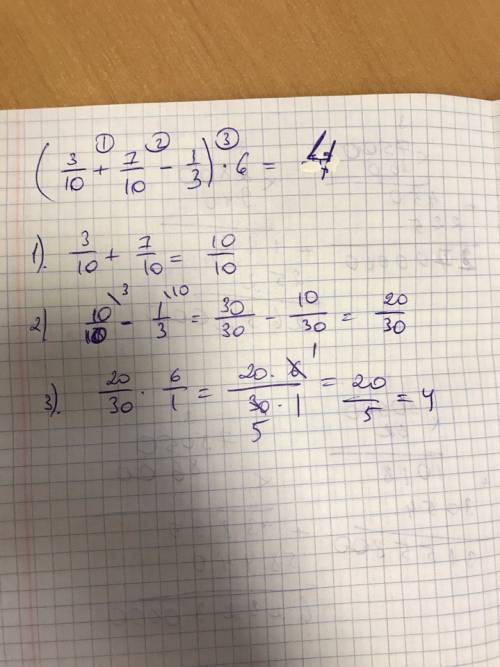 ① ② ③
(3/10 + 7/10 - 1/3) · 6 = 4
1). 3/10 + 7/10 = 10/10
2) 10/10 \3 - 1/3 \10 = 30/30 - 10/30 = 20/30
3). 20/30 · 6/1 = 20 · 6 1/30 5 · 1 = 20/5 = 4